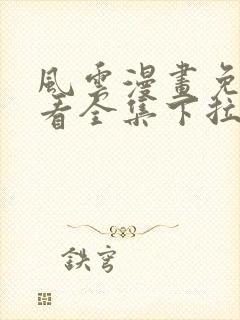 風雲漫畫免
看全集下拉
鉄穹